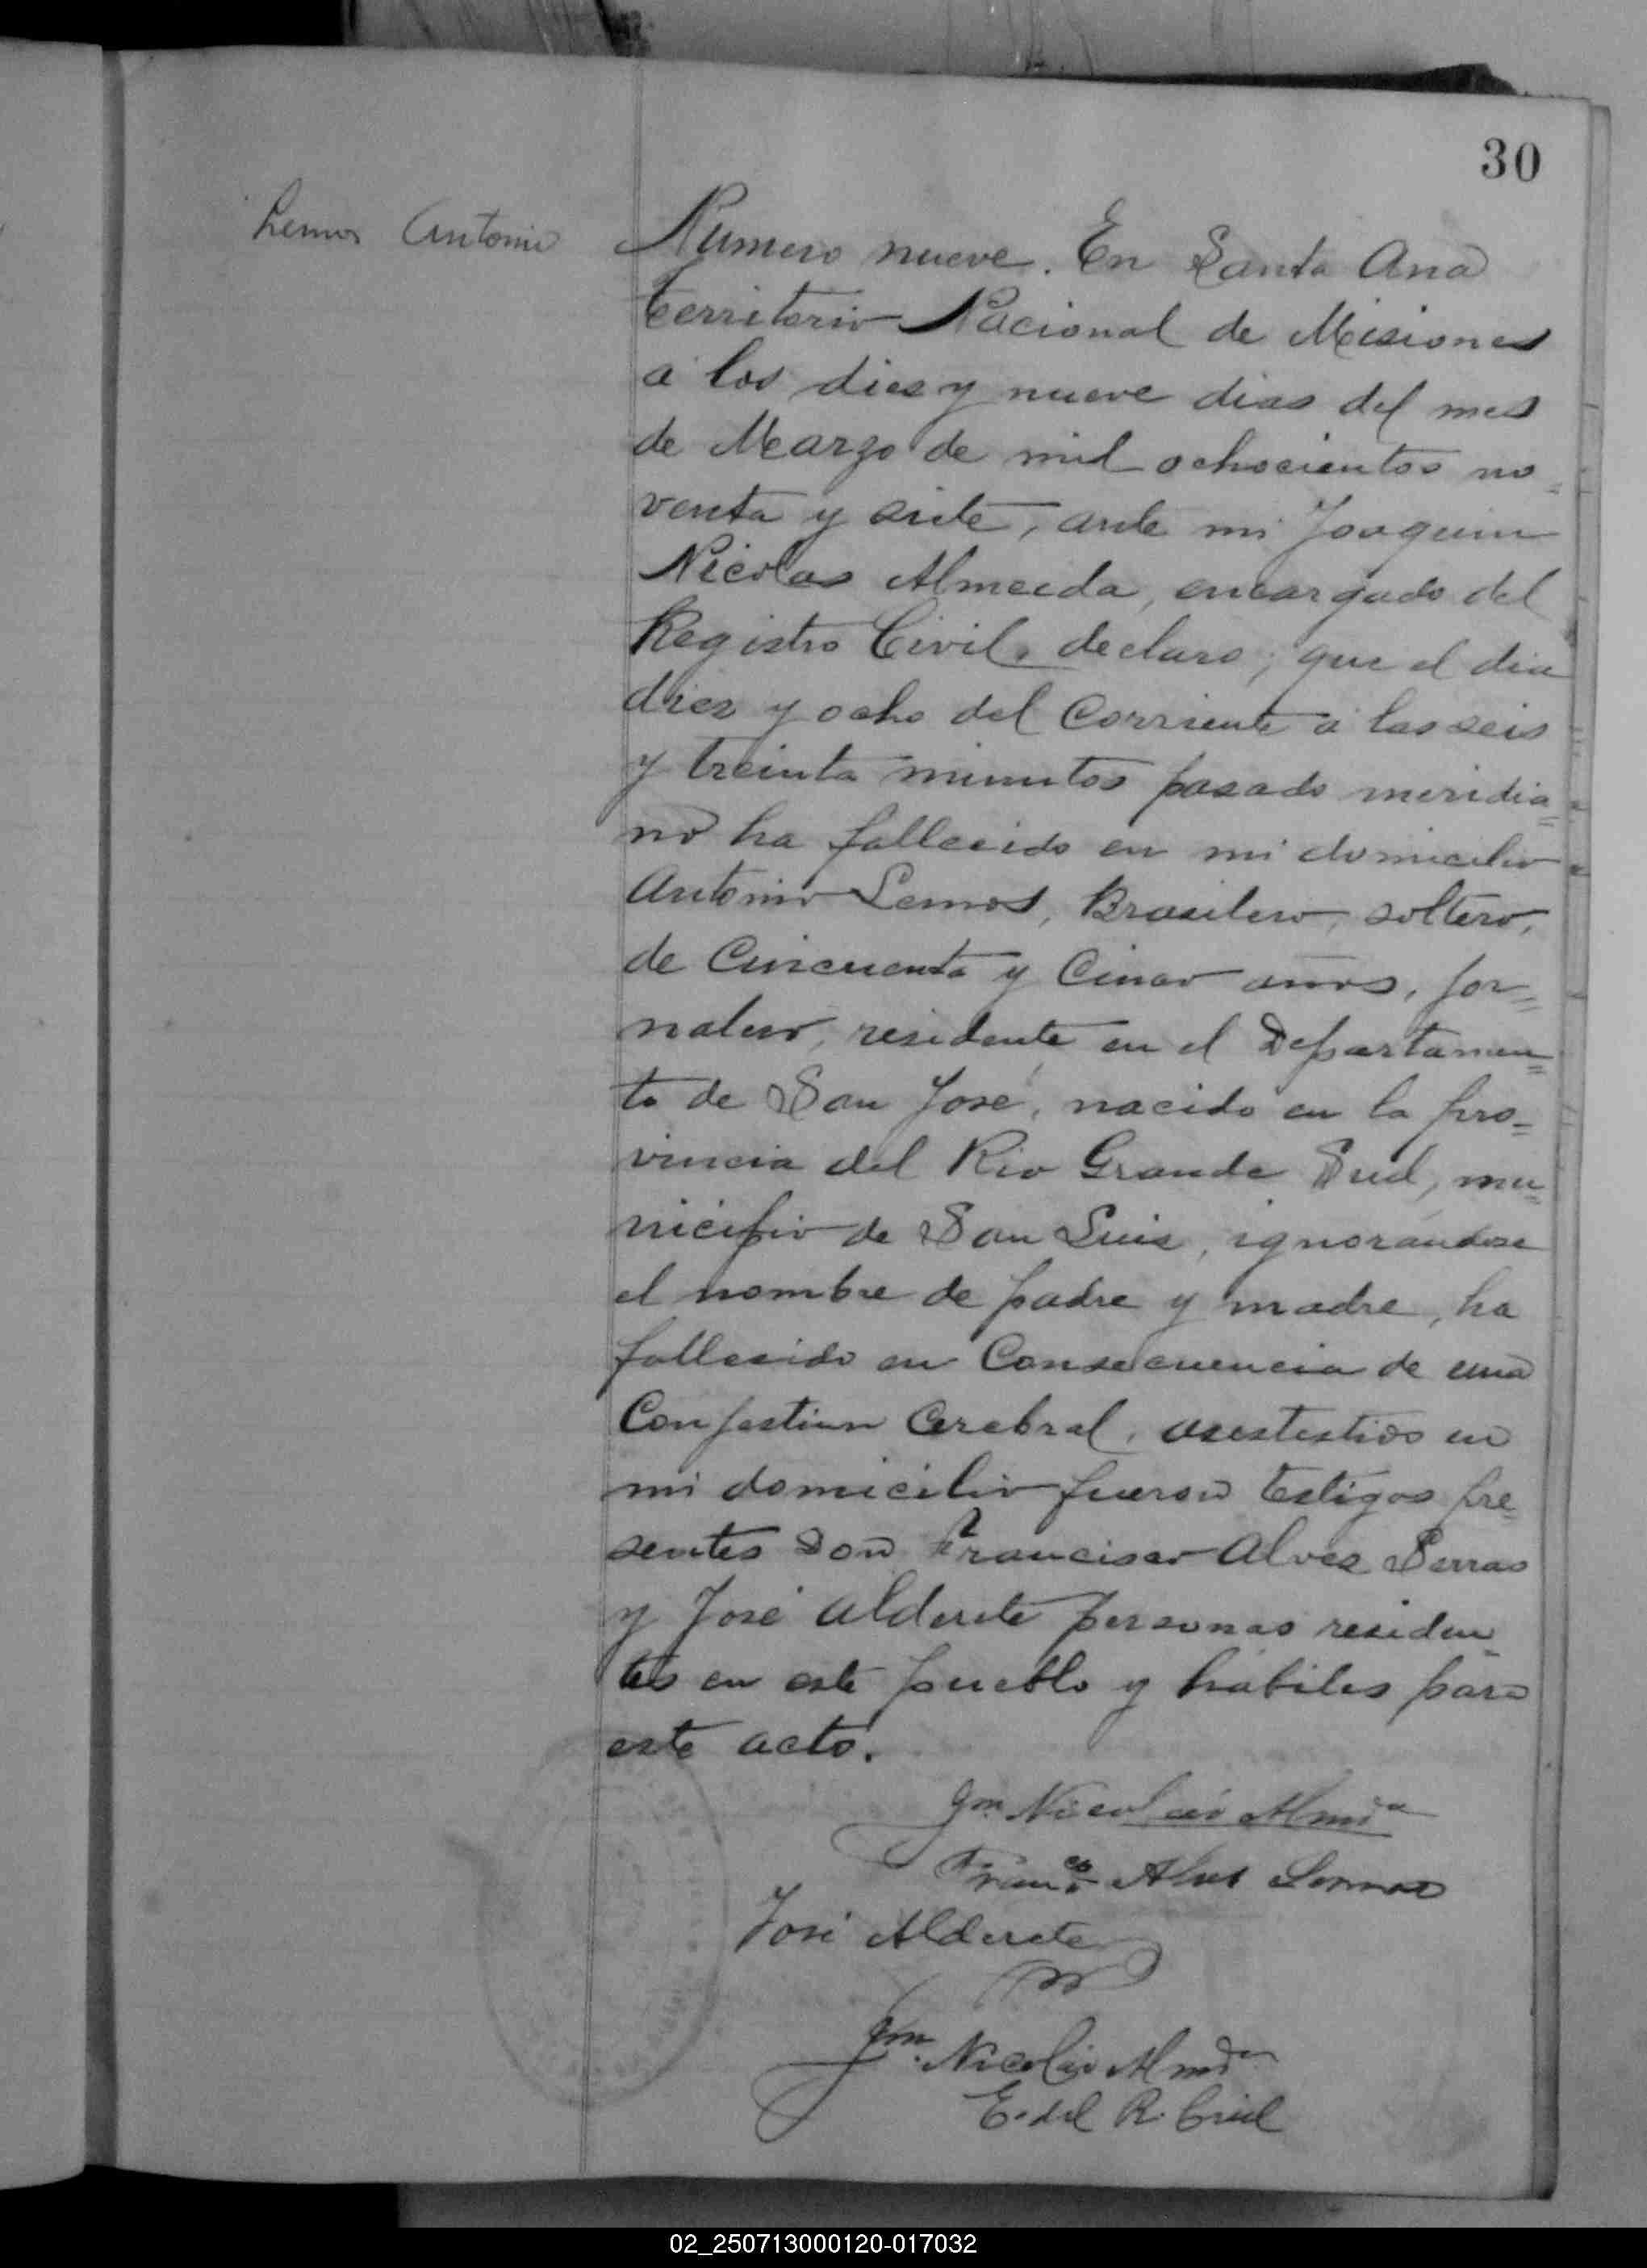 30
Lemos Antonio
Numero nueve. En Santa Ana
territorio Nacional de Misiones
a los diez y nueve dias del mes
de Marzo de mil ochocientos no=
venta y siete, ante mi Joaquin
Nicolas Almeida, encargado del
Registro Civil, declaro; que el dia
diez y ocho del Corriente a las seis
y treinta minutos pasado meridia=
no ha fallecido en mi domicilio
Antonio Lemos, Brasilero, soltero,
de Cincuenta y Cinco años, jor=
nalero, residente en el Departamen=
to de San José, nacido en la pro=
vincia del Rio Grande Sud, mu=
nicipio de San Luis, ignorandose
el nombre de padre y madre, ha
fallecido en Consecuencia de una
Conjestion Cerebral, en
mi domicilio fueron testigos pre=
sentes Don Francisco Alves
y José Alderete personas residen=
tes en este pueblo y habiles para
este acto.
Jm. Nicolás Almda
Franco Alves
José Alderete
Jm. Nicolás Almda
E. del R. Civil
02_250713000120-017032